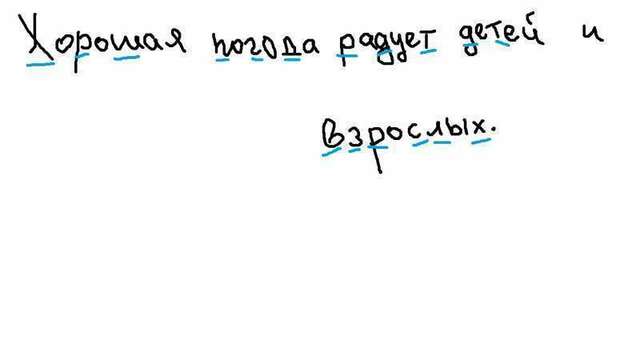 Хорошая погода радует детей и
взрослых.